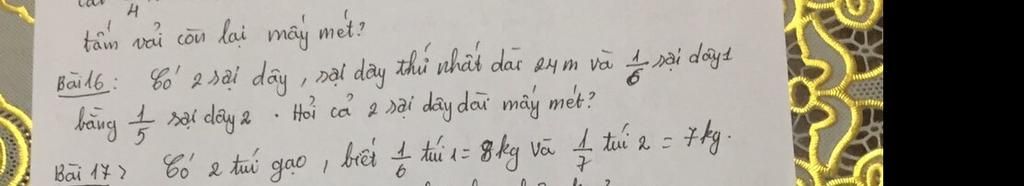 4
tấm vải còn lại mấy mét?
Bài 16: Có 2 sợi dây, sợi dây thứ nhất dài 24m và 1/6 sợi dây 1
bằng 1/5 sợi dây 2. Hỏi cả 2 sợi dây dài mấy mét?
Bài 17> Có 2 túi gạo, biết 1/6 túi 1 = 8kg và 1/7 túi 2 = 7kg.